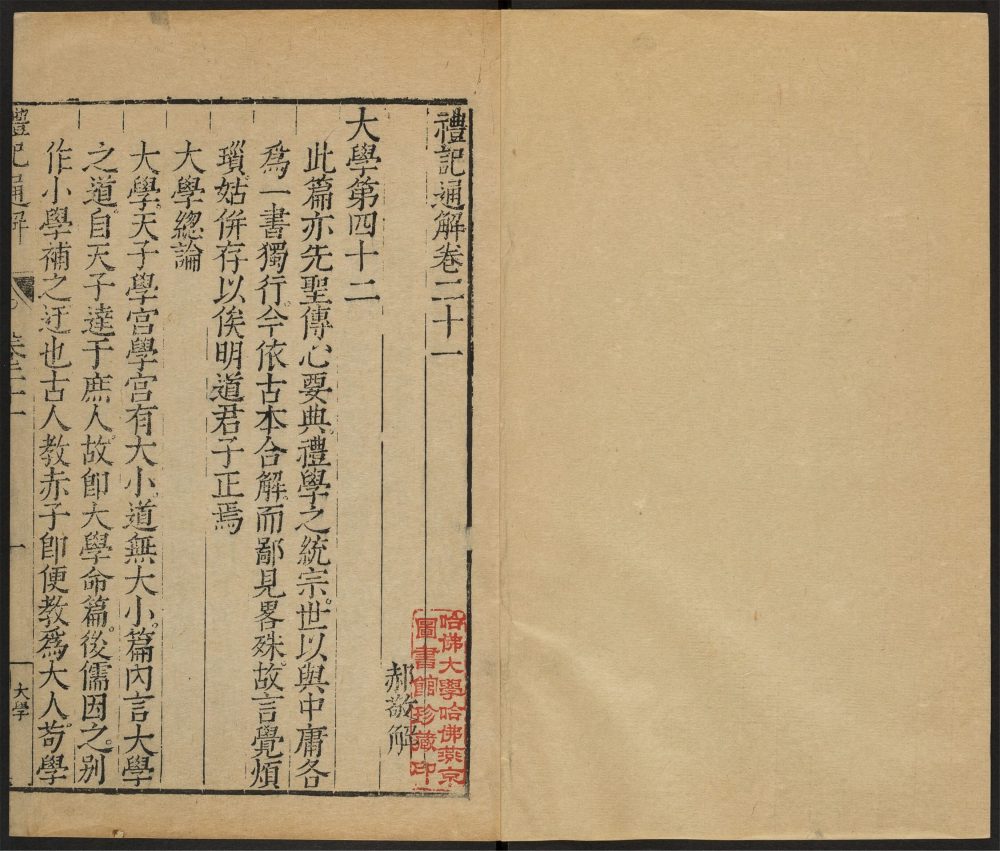 禮記通解卷二十一
郝敬解
哈佛大學哈佛燕京
圖書館珍藏印
大學第四十二
此篇亦先聖傳心要典禮學之統宗世以與中庸各
爲一書獨行今依古本合解而鄙見畧殊故言覺煩
瑣姑併存以俟明道君子正焉
大學總論
大學天子學宫學宫有大小道無大小篇內言大學
之道自天子達于庶人故卽大學命篇後儒因之别
作小學補之迂也古人教赤子卽便教爲大人苟學
禮記通解
卷二十一
一
大學